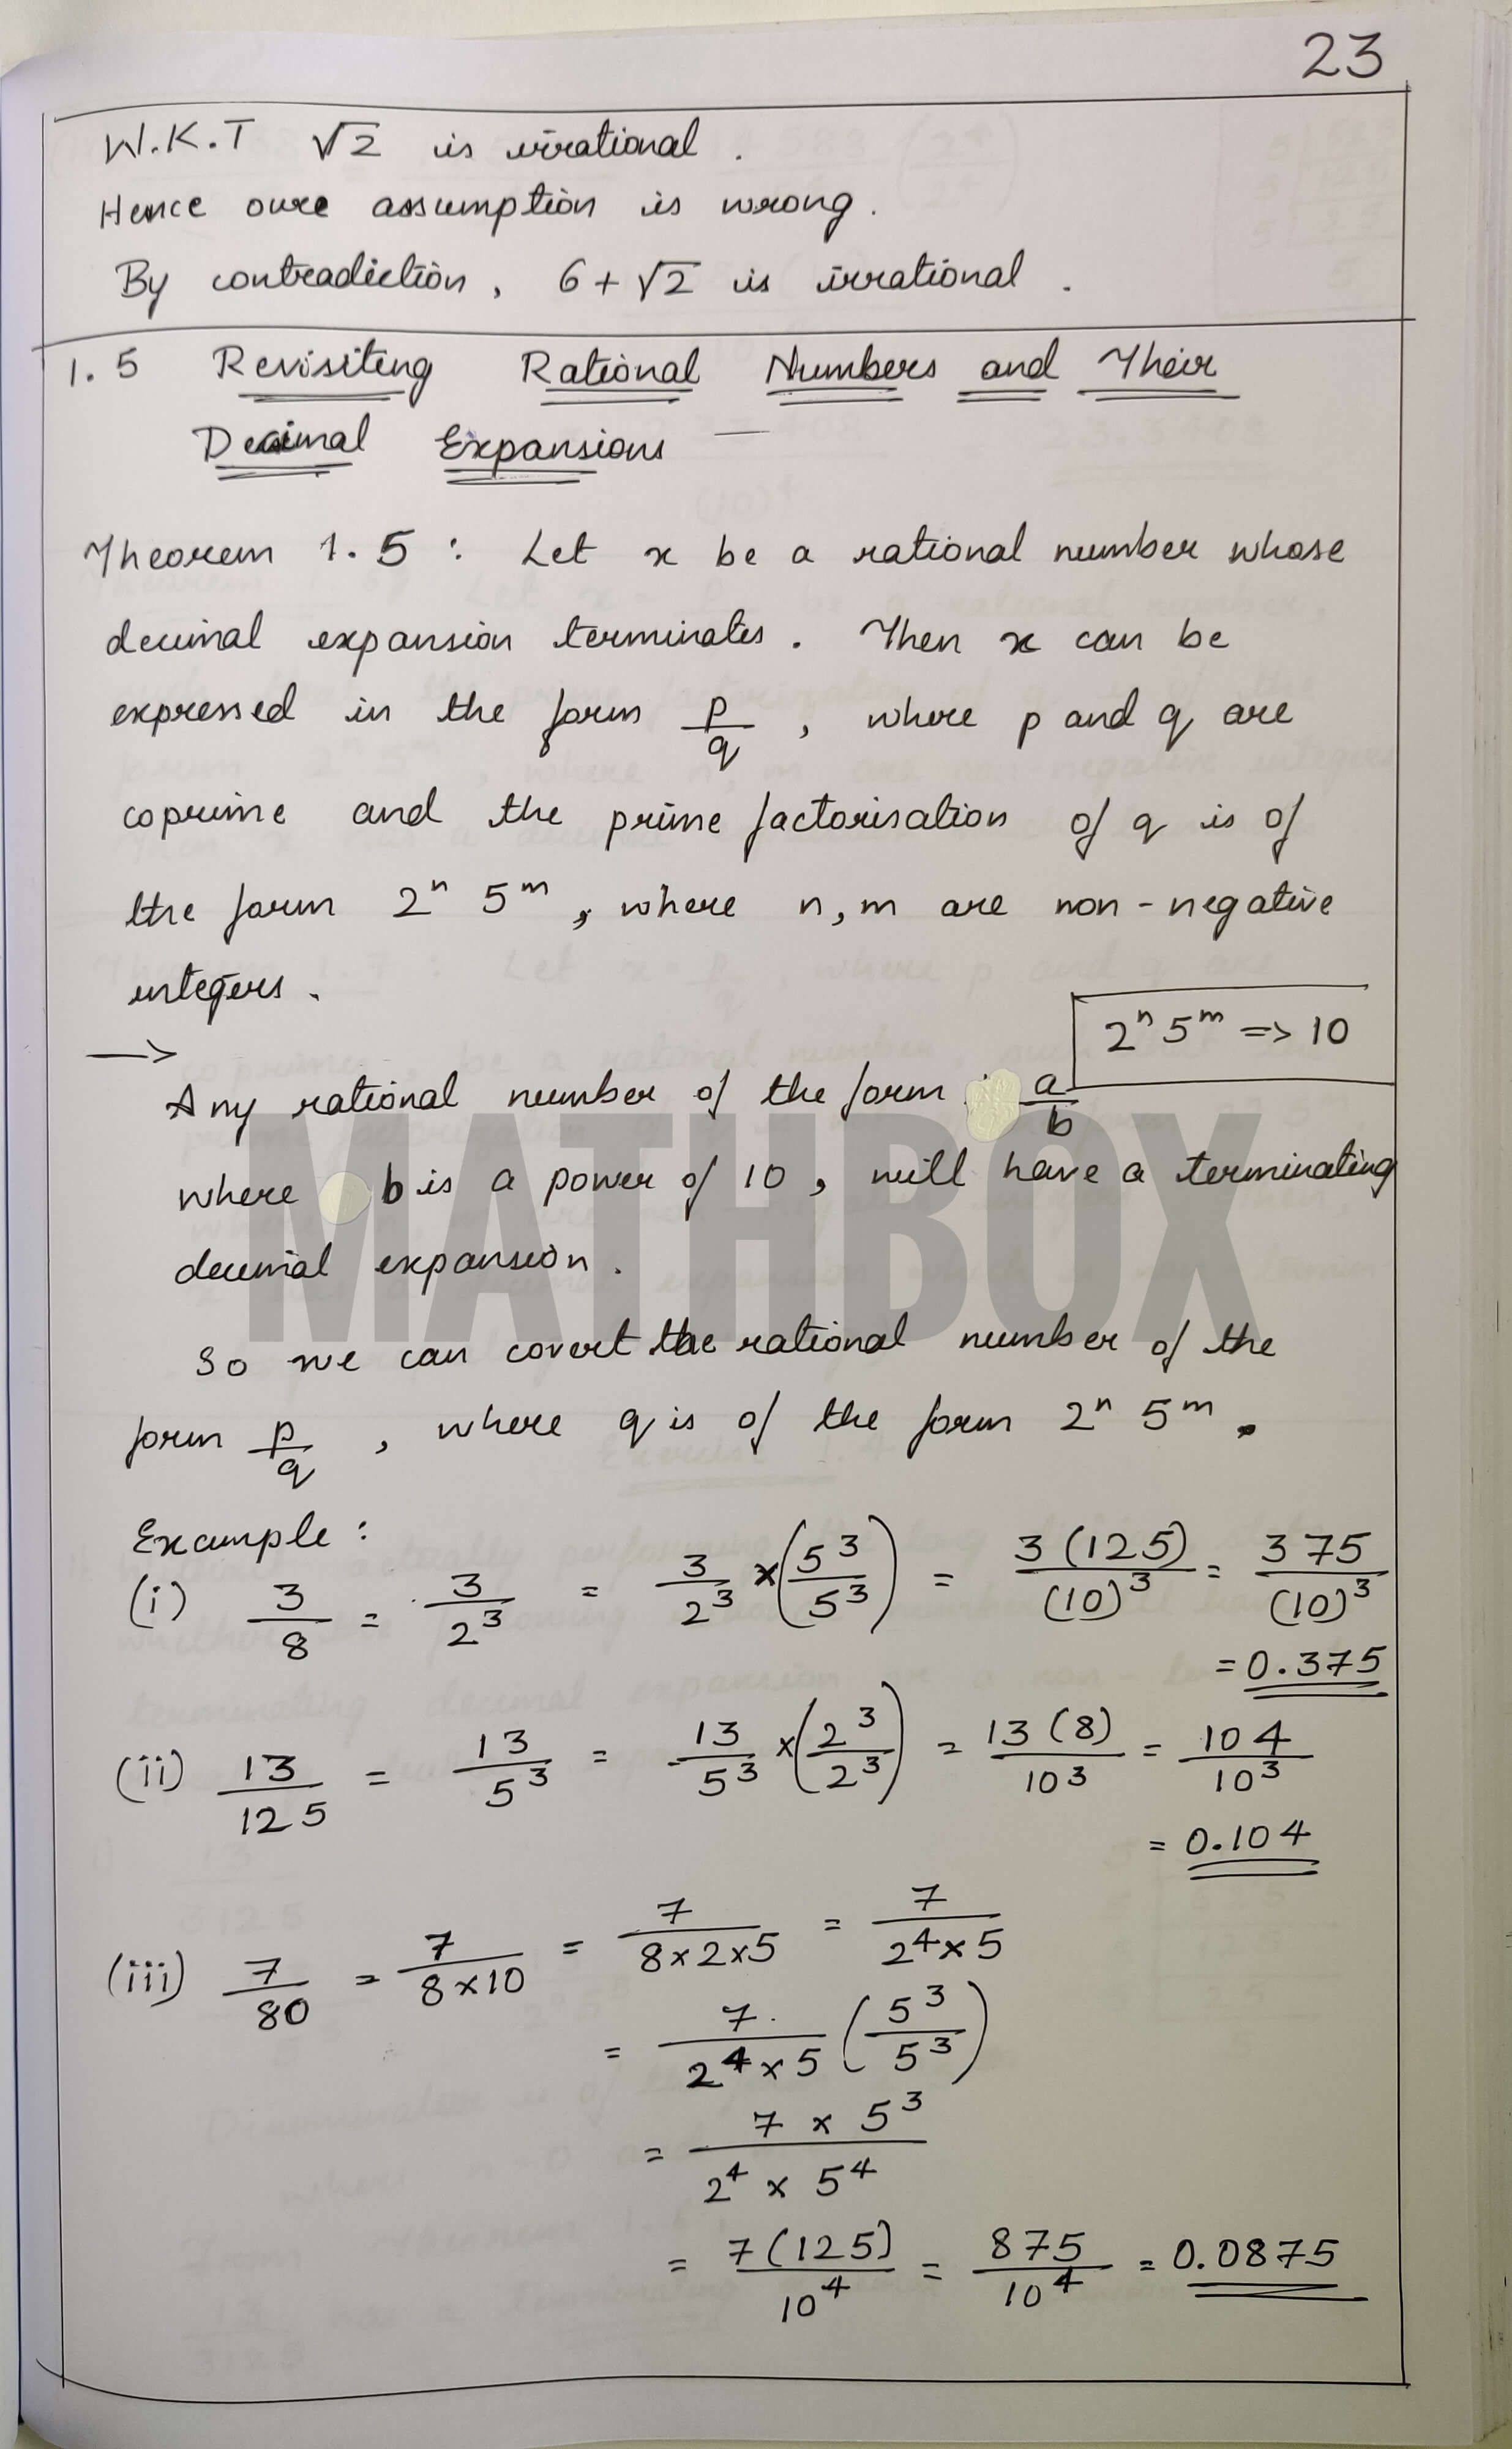 23
W.K.T √2 is irrational.
Hence oure assumption is wrong.
By contradiction, 6+√2 is irrational.
1.5 Revisiting Rational Numbers and Their
Decimal Expansions —
Theorem 1.5 : Let x be a rational number whose
decimal expansion terminates. Then x can be
expressed in the form p/q, where p and q are
coprime and the prime factorisation of q is of
the form 2ⁿ 5ᵐ, where n, m are non-negative
integers.
2ⁿ 5ᵐ => 10
→
Any rational number of the form a/b
where b is a power of 10, will have a terminating
decimal expansion.
MATHBOX
So we can covert the rational number of the
form p/q, where q is of the form 2ⁿ 5ᵐ.
Example :
(i) 3/8 = 3/2³ = 3/2³ × (5³/5³) = 3(125)/(10)³ = 375/(10)³
= 0.375
(ii) 13/125 = 13/5³ = 13/5³ × (2³/2³) = 13(8)/10³ = 104/10³
= 0.104
(iii) 7/80 = 7/8×10 = 7/8×2×5 = 7/2⁴×5
= 7/2⁴×5 (5³/5³)
= 7 × 5³/2⁴ × 5⁴
= 7(125)/10⁴ = 875/10⁴ = 0.0875